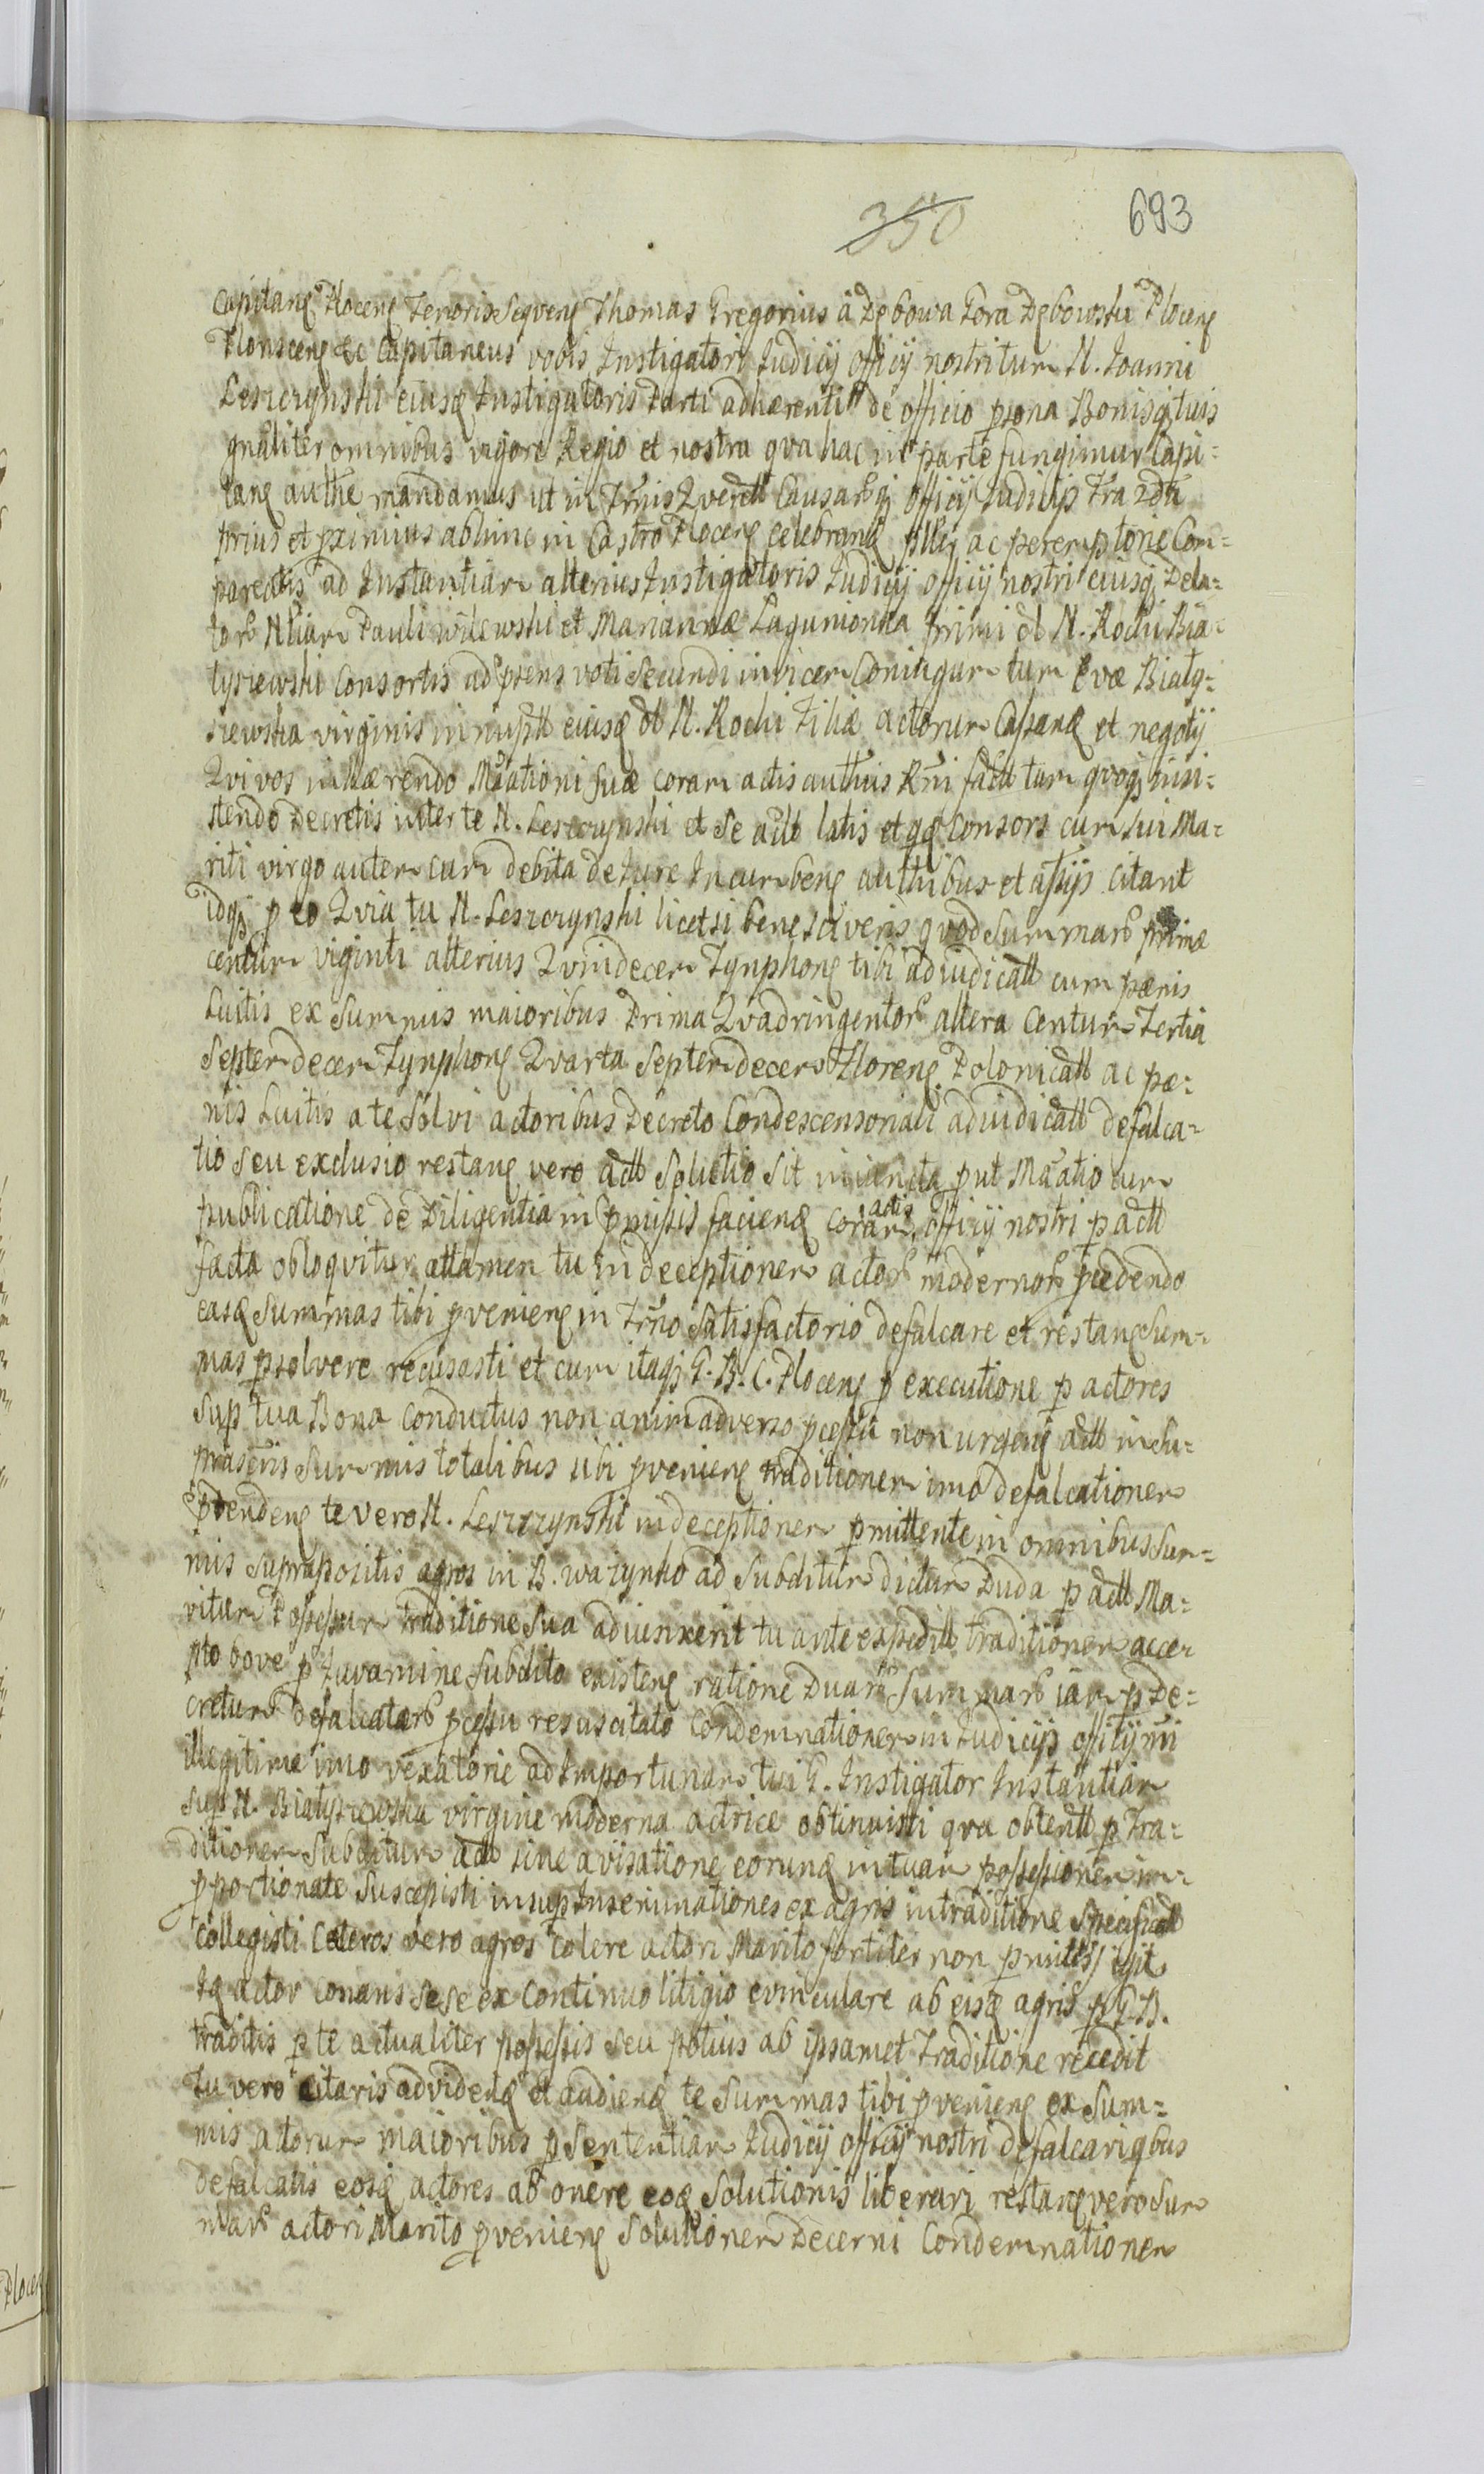 350 693
Capitan Plocen Tenoris Sequen Thomas Gregorius â Dębowa Gora Dębowski Plocen
Plonscen &c Capitaneus vobis Instigatori Judicij officij nostri tum N. Joanni
Leszczynski eiusq Instigatoris Parti adhærenti de officio psona Bonisq tuis
gnaliter omnibus vigore Regio et nostra qva hac in parte fungimur Capi=
tan authte mandamus ut in Trnis Qverell Causarq officij Judicijs Fra 2da
prius et pximius abhinc in Castro Plocen celebran pllr ac peremptorie Com=
pareatis ad Instantiam alterius Instigatoris Judicij officij nostri eiusq Dela=
tor Nlium Pauli wilewski et Mariannæ Lagunionka primi ol N. Rochi Bia=
łyszewski Consortis ad præns voti Secundi invicem Coniugum tum Evæ Biały=
szewska virginis innupt eiusq ol N. Rochi Filiæ actorum Capanq et negotij
Qvi vos inhærendo Mâationi suæ coram actis authnis Rni fact tum qvoq insi=
stendo Decretis inter te N. Leszczynski et se act latis et qd Consors cum sui Ma=
riti virgo autem cum debita de Jure Incumben authibus et assijs citant
idq p eo Qvia tu N. Leszczynski licet si bene sciveris qvod Summar primæ
centum viginti alterius Qvindecem Tynphon tibi adiudicatt cum pœnis
Luitis ex Summis maioribus Prima Qvadringentor altera Centum Tertia
Septem decem Tynphon Qvarta Septem decem Floren Polonicatt ac pœ=
nis Luitis a te Solvi actoribus Decreto Condescensoriali adiudicatt defalca=
tio seu exclusio restan vero act Solutio sit iniuncta put Mâatio cum
publicatione de Diligentia in pmissis facien coram actis officij nostri p act
facta obloqvitur attamen tu in deceptionem actor modernor pcedendo
easq Summas tibi pvenien in Trno Satisfactorio defalcare et restan Sum=
mas psolvere recusasti et cum itaq G. B. C. Plocen p executione p actores
sup tua Bona Conductus non animadverso pcessu non urgen act in su=
prascris Summis totalibus sibi pvenien traditionem imo defalcationem
ptenden te vero N. Leszczynski in deceptionem pmittente in omnibus Sum=
mis suprapositis agros in B. wazynko ad Subditum dictum Duda p act Ma=
ritum Possessum traditione sua adiunxerit tu ante expedit traditionem acce=
pto bove p Juvamine Subdito existen ratione Duar Summar iam p De=
cretum defalcatar pcessu resuscitato Condemnationem in Judicijs officij nri
illegitime imo vexatorie ad Importunam tui G. Instigator Instantiam
Sup N. Białyszewska virgine moderna actrice obtinuisti qva obtent p Tra=
ditionem Subditum act sine avisatione eorunq in tuam possessionem im=
pportionate Suscepisti insup Inseminationes ex agris in traditione Specificatt
collegisti Ceteros vero agros colere actori Marito fortiter non pmittis
Iq actor conans sese ex Continuo litigio evinculare ab eisq agris p G. B.
traditis p te actualiter possessis seu potius ab ipsamet Traditione recedit
Tu vero citaris ad viden et audien te Summas tibi pvenien ex Sum=
mis actorum maioribus p Sententiam Judicij officij nostri defalcari qbus
defalcatis eosq actores ab onere eoq Solutionis liberari restan vero Sum
mar actori Marito pvenien Solutionem Decerni Condemnationem
Plocen